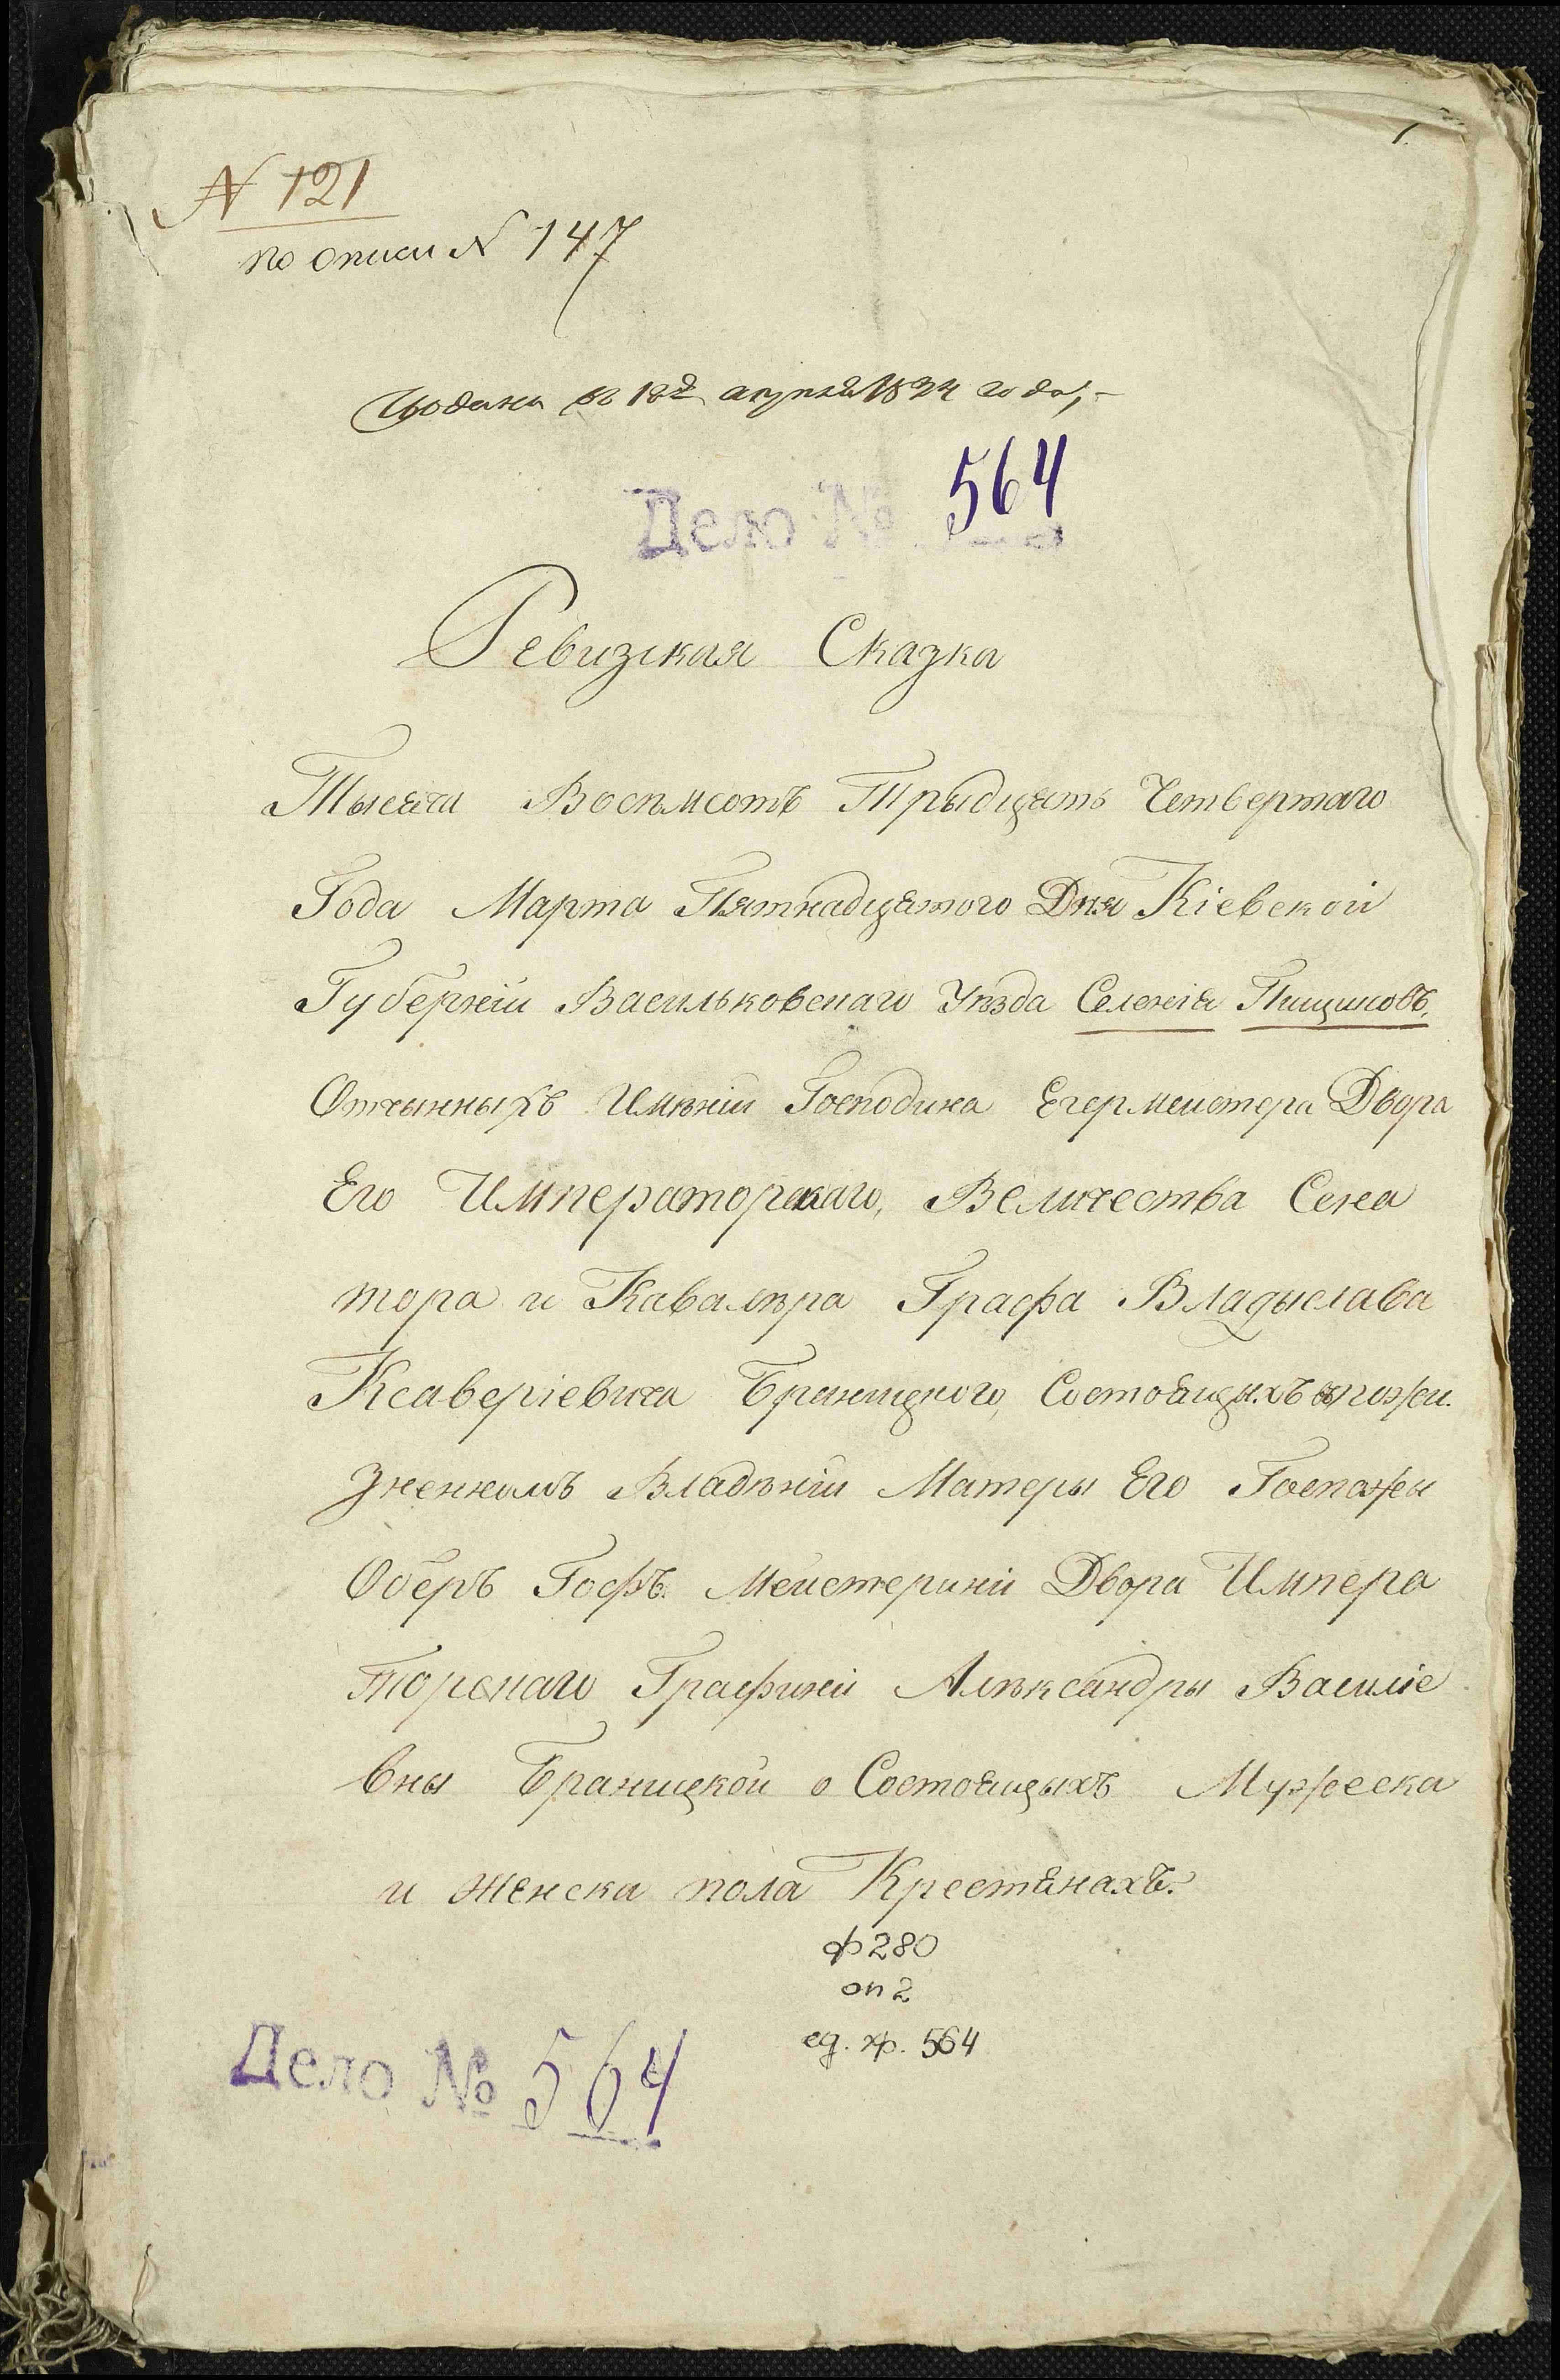 1.
N 121
по описи N 147
Подана въ 18й апреля 1834 года,-
Дело № 564
Ревизская Сказка
Тысяча Восѣмсотъ Трыдцять Четвертаго
Года Марта Пятнадцятого Дня Кіевской
Губерніи Васильковскаго Уѣзда Селенія Пищиковъ.
Отчынныхъ Имѣніи Господина Егермейстера Двора
Его Императорскаго, Величества Сена
тора и Кавалѣра Графа Владыслава
Ксаверіевича Браницкого, Состоящихъ въ пожи.
зненномъ Владѣніи Матеры Его Госпожы
Оберъ Гофъ. Мейстерині Двора Импера
торскаго Графині Алѣксандры Василіе
вны Браницкой о Состоящыхъ Мужеска
и женска пола Крестянахъ.
ф 280
оп 2
ед. хр. 564
Дело № 564